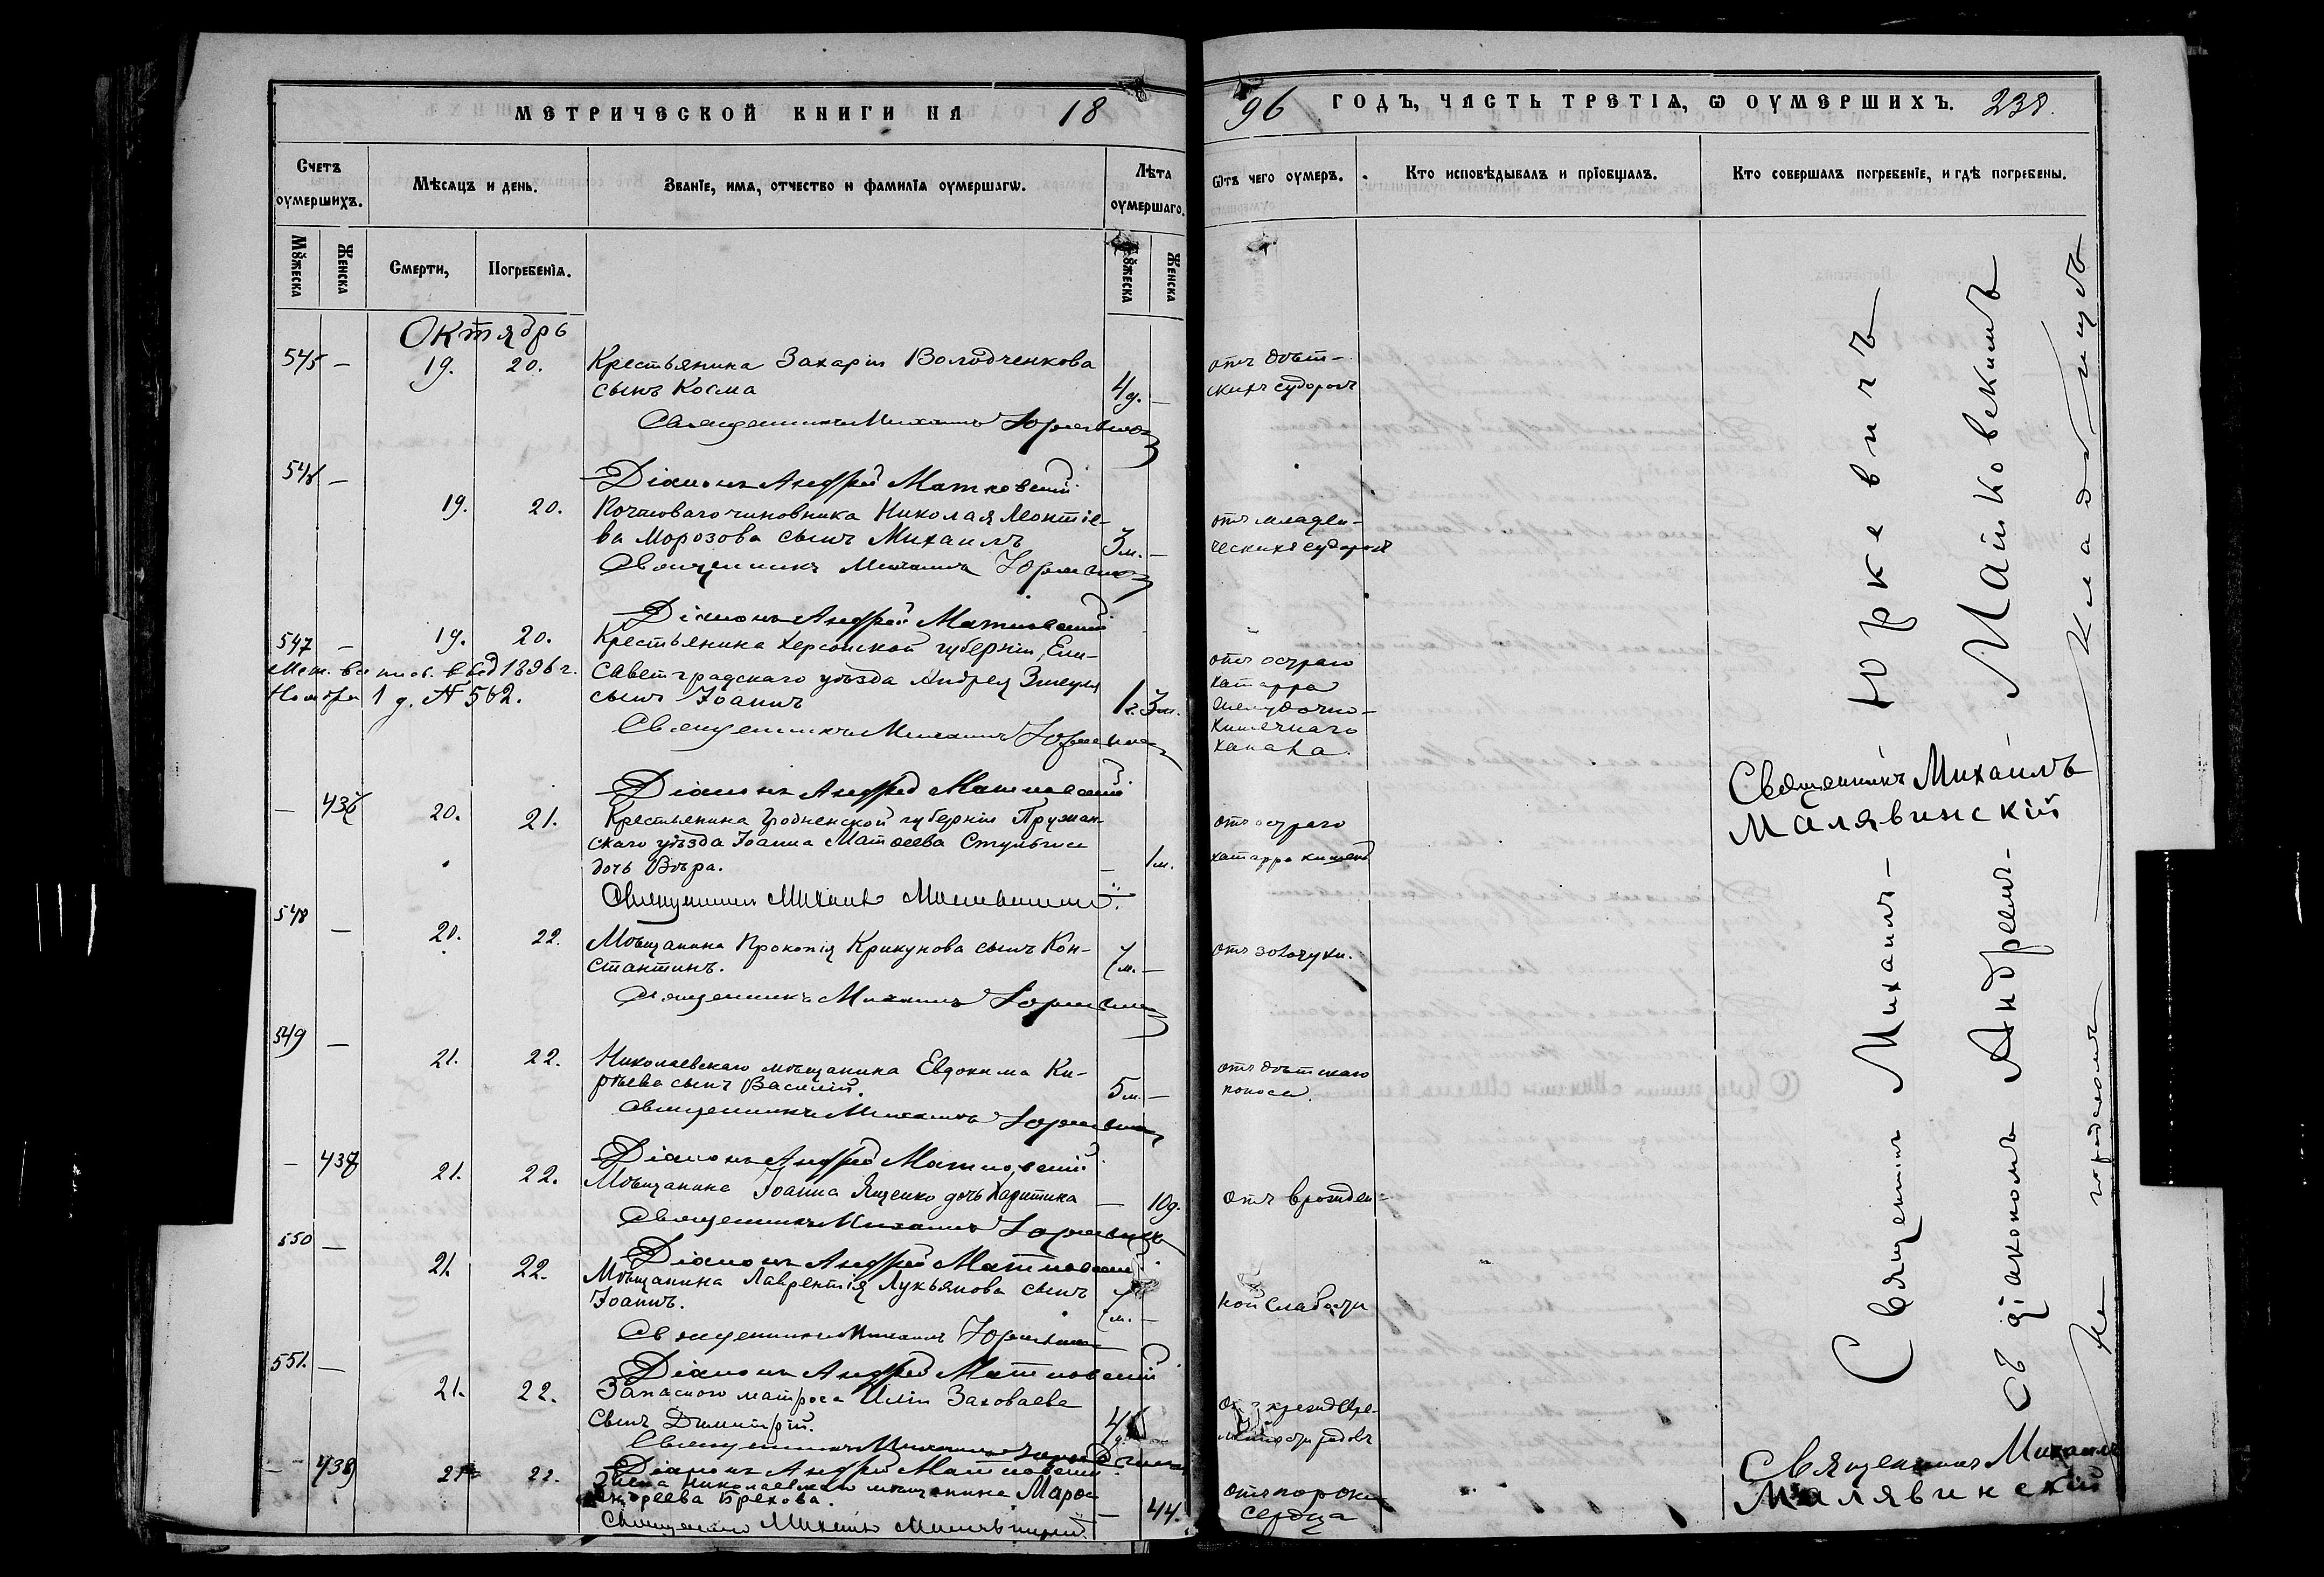 МЕТРИЧЕСКОЙ КНИГИ НА 18
Счетъ оумершихъ.
Мѣсяцъ и день.
Званіе, имя, отчество и фамилія оумершагѡ.
Лѣта оумершаго.
Мѹжеска
Женска
Смерти,
Погребенія.
Мѹжеска
Женска
Октябрь
545 — 19. 20. Крестьянина Захарія Володченкова
сынъ Косма 4 д. —
Священникъ Михаилъ Юркевичъ
Діаконъ Андрей
546 — 19. 20. Почтоваго чиновника Николая Леонтіе-
ва Морозова сынъ Михаилъ 3 м. —
Священникъ Михаилъ Юркевичъ
Діаконъ Андрей
547 — 19. 20. Крестьянина Херсонской губерніи, Ели-
саветградскаго уѣзда Андрея
сынъ Іоаннъ 1 г. 3 м.
1896 г.
Ноября 1 д. № 562.
Священникъ Михаилъ Юркевичъ
Діаконъ Андрей
— 436 20. 21. Крестьянина Гродненской губерніи Пружан-
скаго уѣзда Іоанна Матѳеева
дочь Вѣра. — 1 м.
Священникъ Михаилъ Малявинскій.
548 — 20. 22. Мѣщанина Прокопія Крикунова сынъ Кон-
стантинъ. 7 м. —
Священникъ Михаилъ Юркевичъ
549 — 21. 22. Николаевскаго мѣщанина Евдокима Ки-
рѣева сынъ Василій. 5 м. —
Священникъ Михаилъ Юркевичъ
Діаконъ Андрей
— 437 21. 22. Мѣщанина Іоанна Яценко дочь Харитина — 10 д.
Священникъ Михаилъ Юркевичъ
Діаконъ Андрей
550 — 21. 22. Мѣщанина Лаврентія Лукьянова сынъ
Іоаннъ. 7 м. —
Священникъ Михаилъ Юркевичъ
Діаконъ Андрей
551. — 21. 22. Запаснаго матроса Иліи
сынъ Димитрій.
Священникъ Михаилъ Юркевичъ
Діаконъ Андрей
— 438 22. Николаевскаго мѣщанина
Андреева Брехова. — 44.
Священникъ Михаилъ Малявинскій.
96 ГОДЪ, ЧАСТЬ ТРЕТІЯ, Ѡ ОУМЕРШИХЪ. 238.
Ѿтъ чего оумеръ.
Кто исповѣдывалъ и пріобщалъ.
Кто совершалъ погребеніе, и гдѣ погребены.
отъ дѣт-
скихъ судорогъ
отъ младен-
ческихъ судорогъ
отъ остраго
катарра
желудочно-
кишечнаго
канала.
отъ остраго
катарра кишекъ
отъ золотухи.
отъ дѣтскаго
поноса.
отъ врожден-
ной слабости
отъ
родовъ
отъ порока
сердца
Священникъ Михаилъ Юркевичъ
съ діакономъ Андреемъ Майковскимъ
на городскомъ кладбищѣ
Священникъ Михаилъ
Малявинскій
Священникъ Михаилъ
Малявинскій